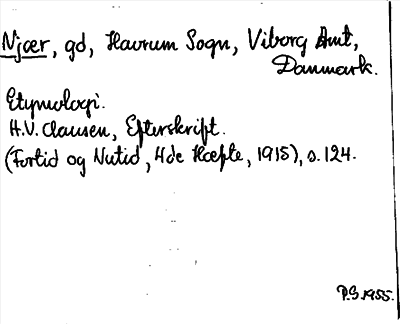 Njær, gd, Havrum Sogn, Viborg Amt,
Danmark.
Etymologi.
H.V. Clausen, Efterskrift.
(Fortid og Nutid, 4de Hæfte, 1915), s. 124.
P.S. 1955.